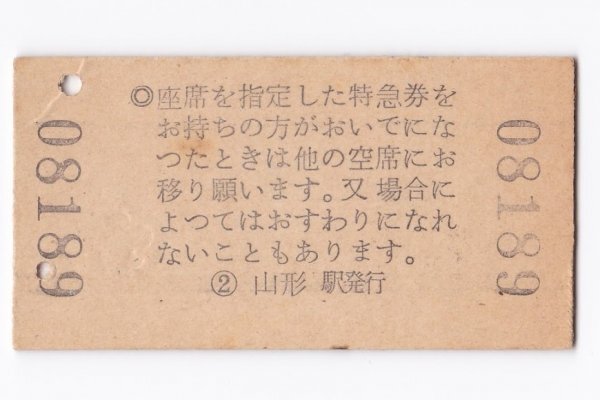 08189
◎座席を指定した特急券を
お持ちの方がおいでにな
つたときは他の空席にお
移り願います。又場合に
よつてはおすわりになれ
ないこともあります。
② 山形 駅発行
08189